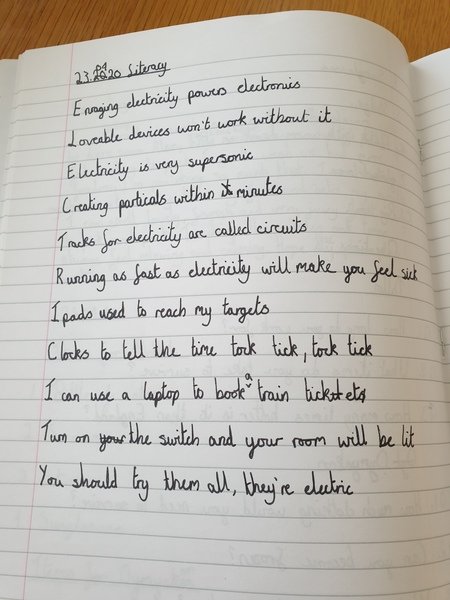 23.04.20 Literacy
Enraging electricity powers electronics
Loveable devices won't work without it
Electricity is very supersonic
Creating particals within minutes
Tracks for electricity are called circuits
Running as fast as electricity will make you feel sick
Ipads used to reach my targets
Clocks to tell the time tock tick, tock tick
I can use a laptop to book a train tickets
Turn on the switch and your room will be lit
You should try them all, they're electric